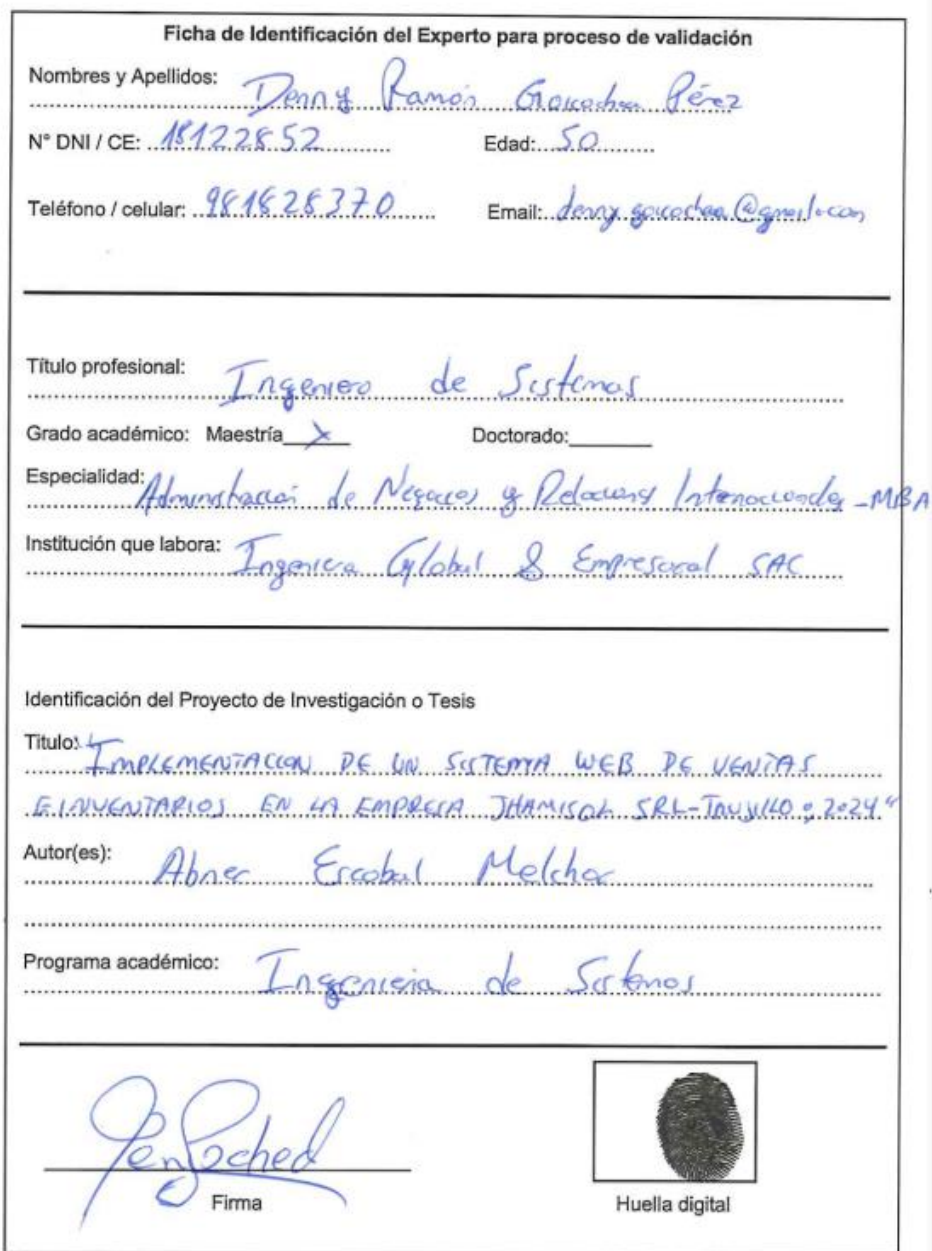 Ficha de Identificación del Experto para proceso de validación
Nombres y Apellidos: Denny Ramón Goicochea Pérez
N° DNI / CE: 18122852 Edad: 50
Teléfono / celular: 981828370 Email: denny.goicochea@gmail.com
Título profesional: Ingeniero de Sistemas
Grado académico: Maestría X Doctorado:
Especialidad: Administración de Negocios y Relaciones Internacionales - MBA
Institución que labora: Ingenieria Global & Empresarial SAC
Identificación del Proyecto de Investigación o Tesis
Titulo: "IMPLEMENTACION DE UN SISTEMA WEB DE VENTAS
E INVENTARIOS EN LA EMPRESA JHAMISOL SRL-TRUJILLO, 2024"
Autor(es): Abner Escobal Melchor
Programa académico: Ingenieria de Sistemas
Firma
Huella digital